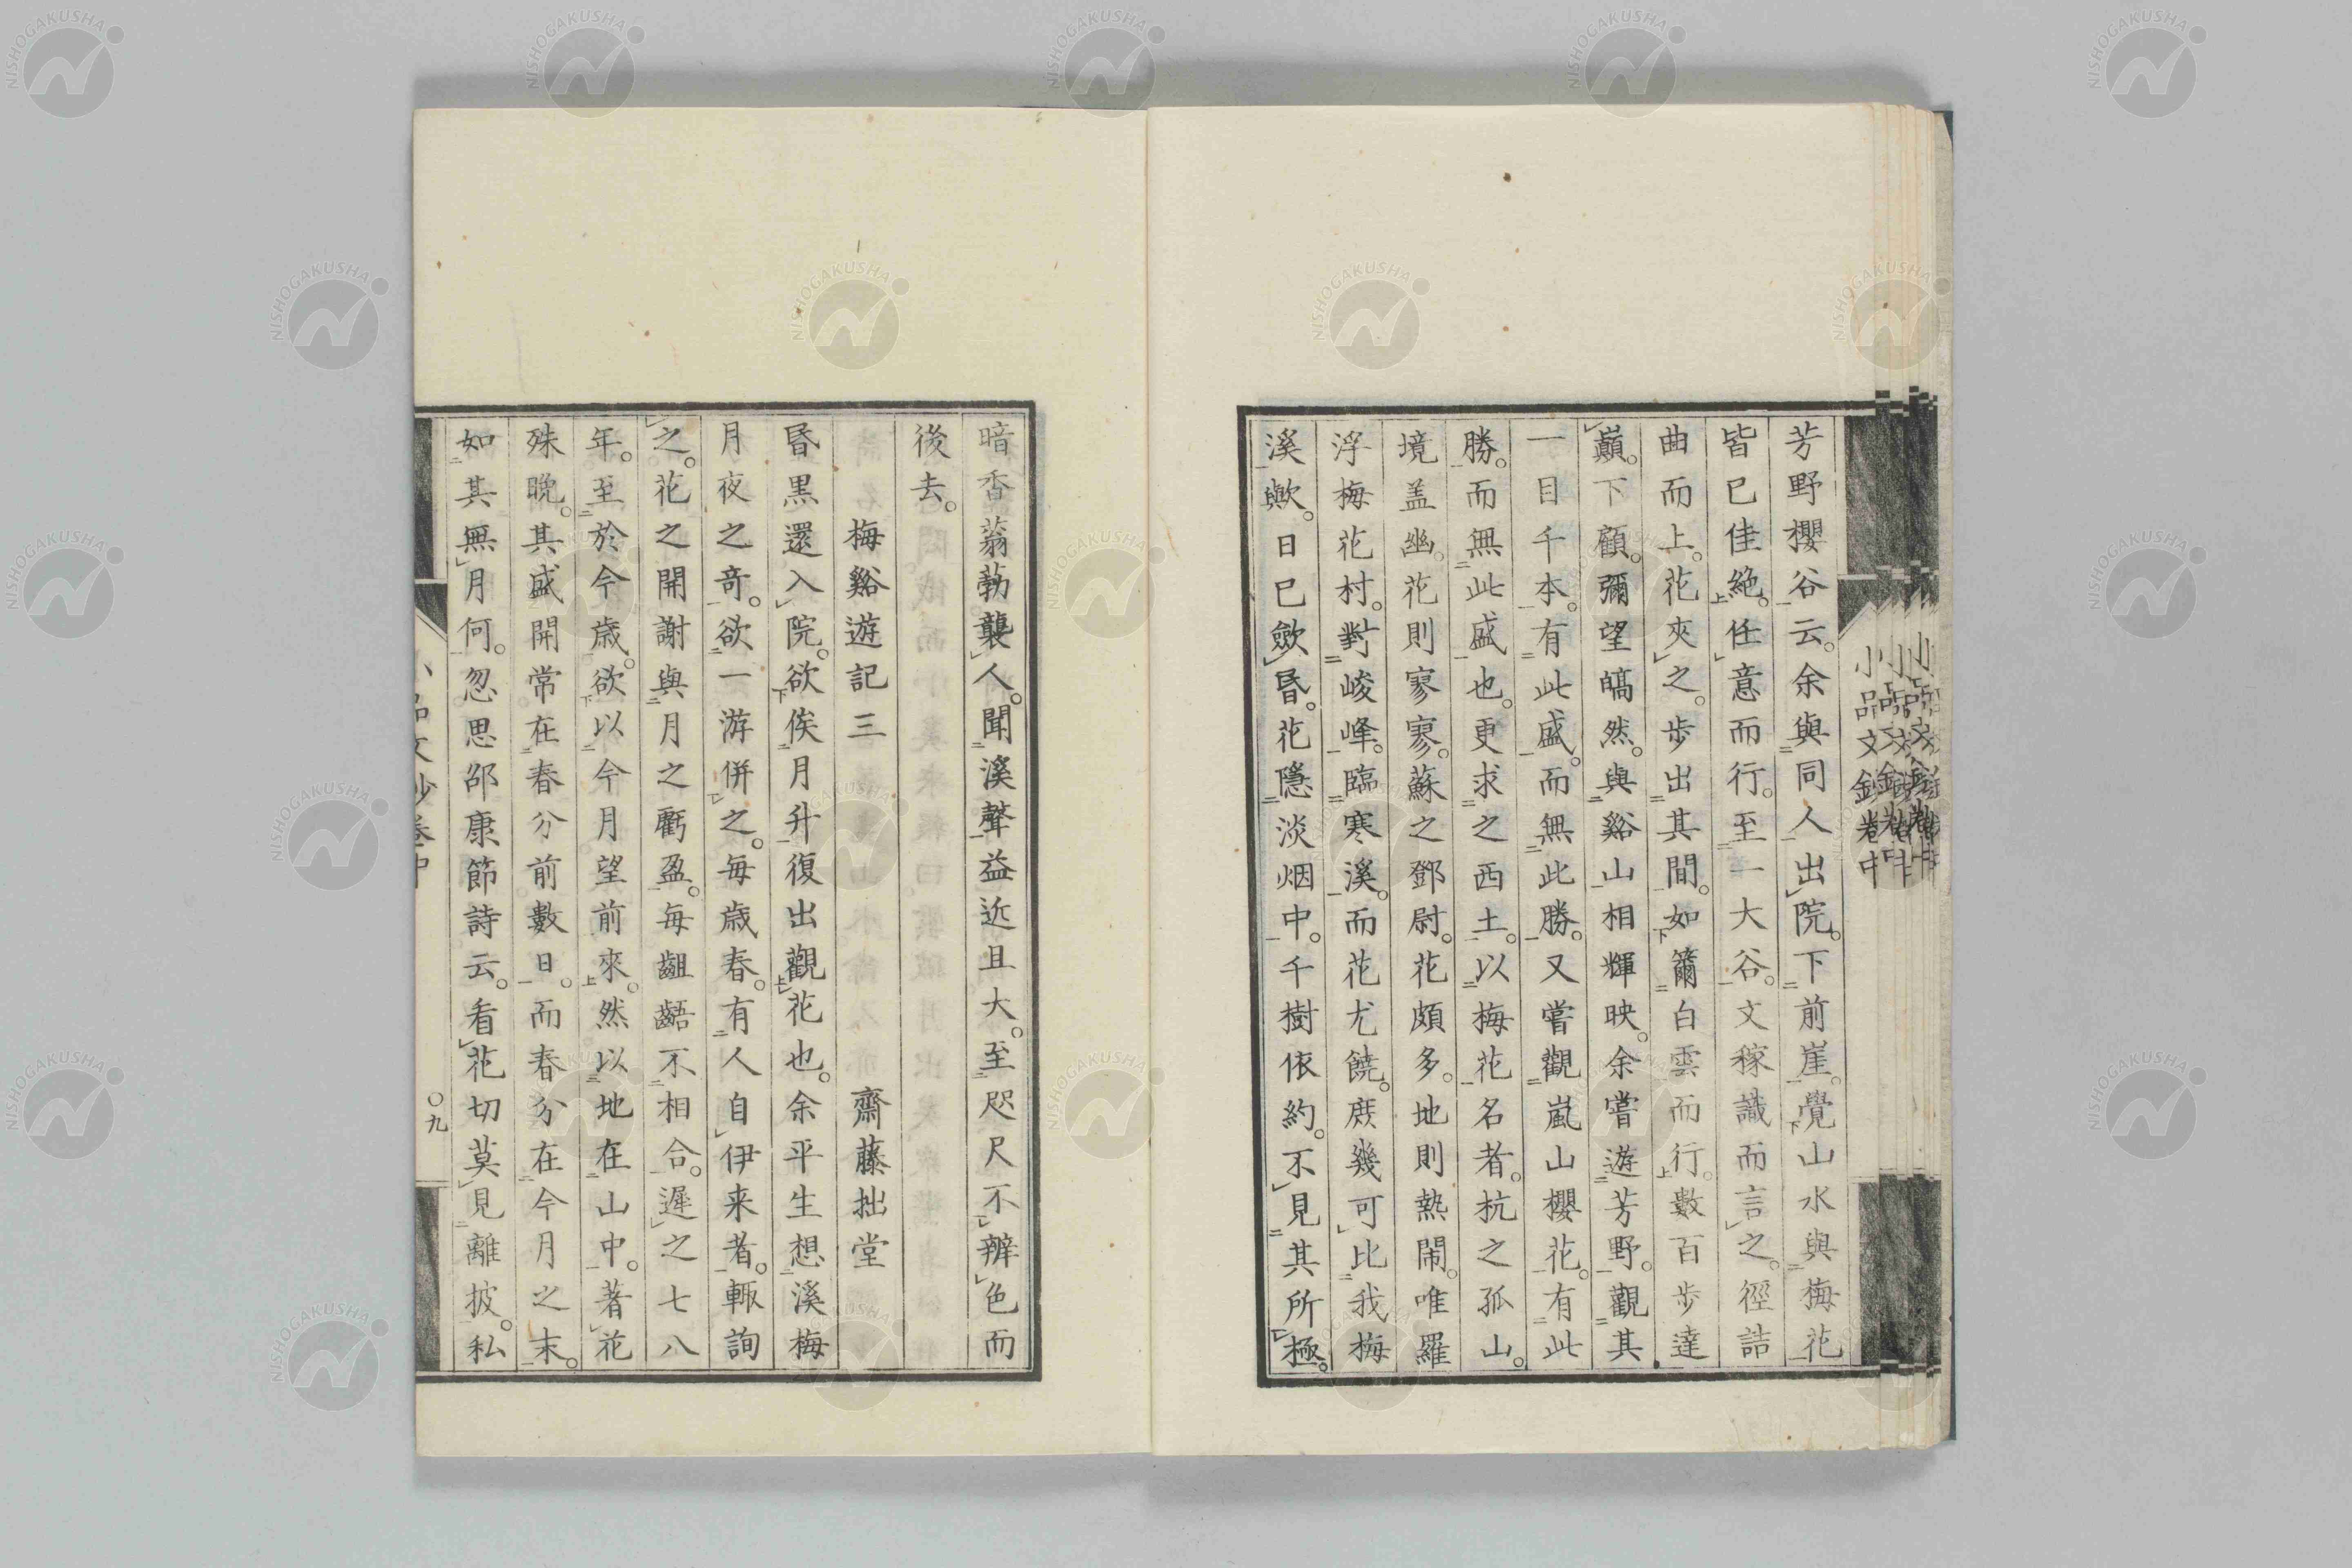 芳野櫻谷云。余與同人出院。下前崖。覺山水與梅花
皆已佳絶。任意而行。至一大谷。文稼識而言之。徑詰
曲而上。花夾之。歩出其間。如籋白雲而行。數百歩達
巓。下顧。彌望皜然。與谿山相輝映。余嘗遊芳野。觀其
一目千本。有此盛。而無此勝。又嘗觀嵐山櫻花。有此
勝。而無此盛也。更求之西土。以梅花名者。杭之孤山。
境盖幽。花則寥寥。蘇之鄧尉。花頗多。地則熱鬧。唯羅
浮梅花村。對峻峰。臨寒溪。而花尤饒。庶幾可比我梅
溪歟。日已斂昏。花隱淡烟中。千樹依約。不見其所極。
小品文鈔卷中
暗香蓊勃襲人。聞溪聲益近且大。至咫尺不辨色而
後去。
梅谿遊記三　齋藤拙堂
昏黒還入院。欲俟月升復出觀花也。余平生想溪梅
月夜之奇。欲一游併之。毎歳春。有人自伊来者。輙詢
之。花之開謝與月之虧盈。毎齟齬不相合。遲之七八
年。至於今歳。欲以今月望前來。然以地在山中。著花
殊晩。其盛開常在春分前數日。而春分在今月之末。
如其無月何。忽思邵康節詩云。看花切莫見離披。私
小品文鈔卷中
〇九
NISHOGAKUSHA